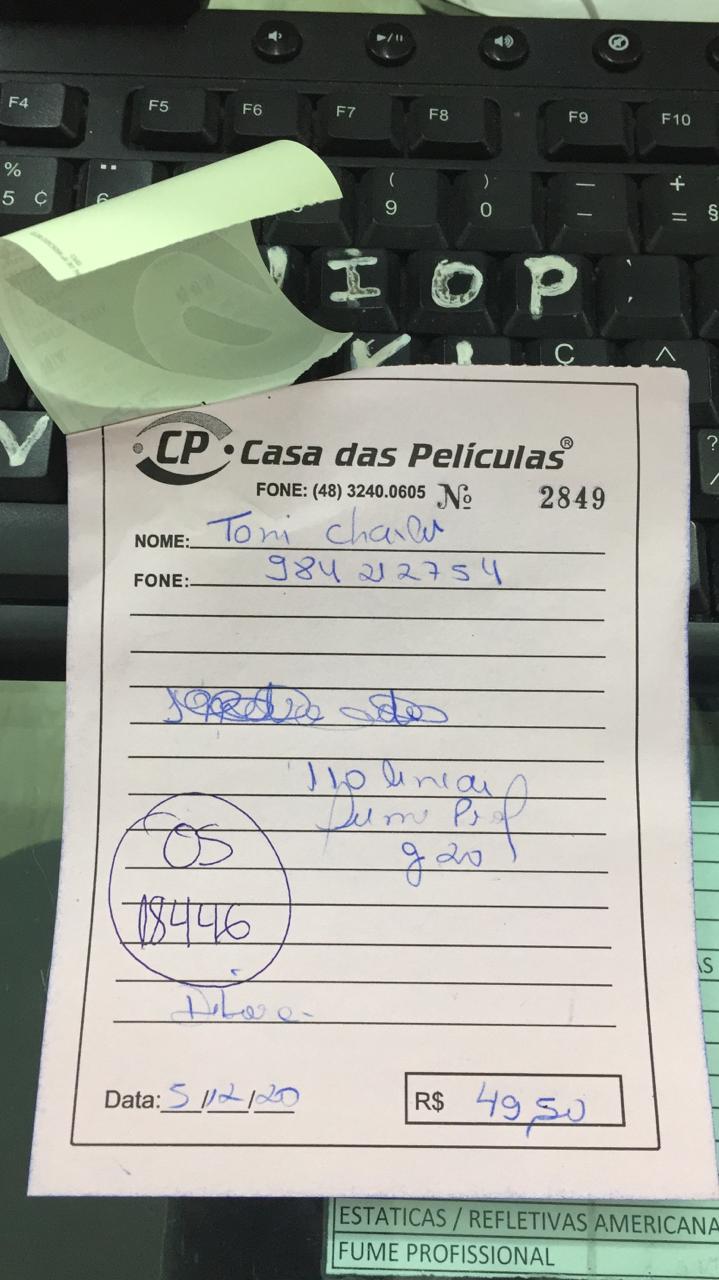 F4 F5 F6 F7 F8 F9 F10
% 5 ¢ 6 ( 9 ) 0 — - + = §
I O P
Ç ^
V
?
/
CP Casa das Películas®
FONE: (48) 3240.0605 Nº 2849
NOME: Toni
FONE: 984 212754
110 linear
Prof
g 20
OS
18446
Data: 5/12/20 R$ 49,50
ESTATICAS / REFLETIVAS AMERICANA
FUME PROFISSIONAL